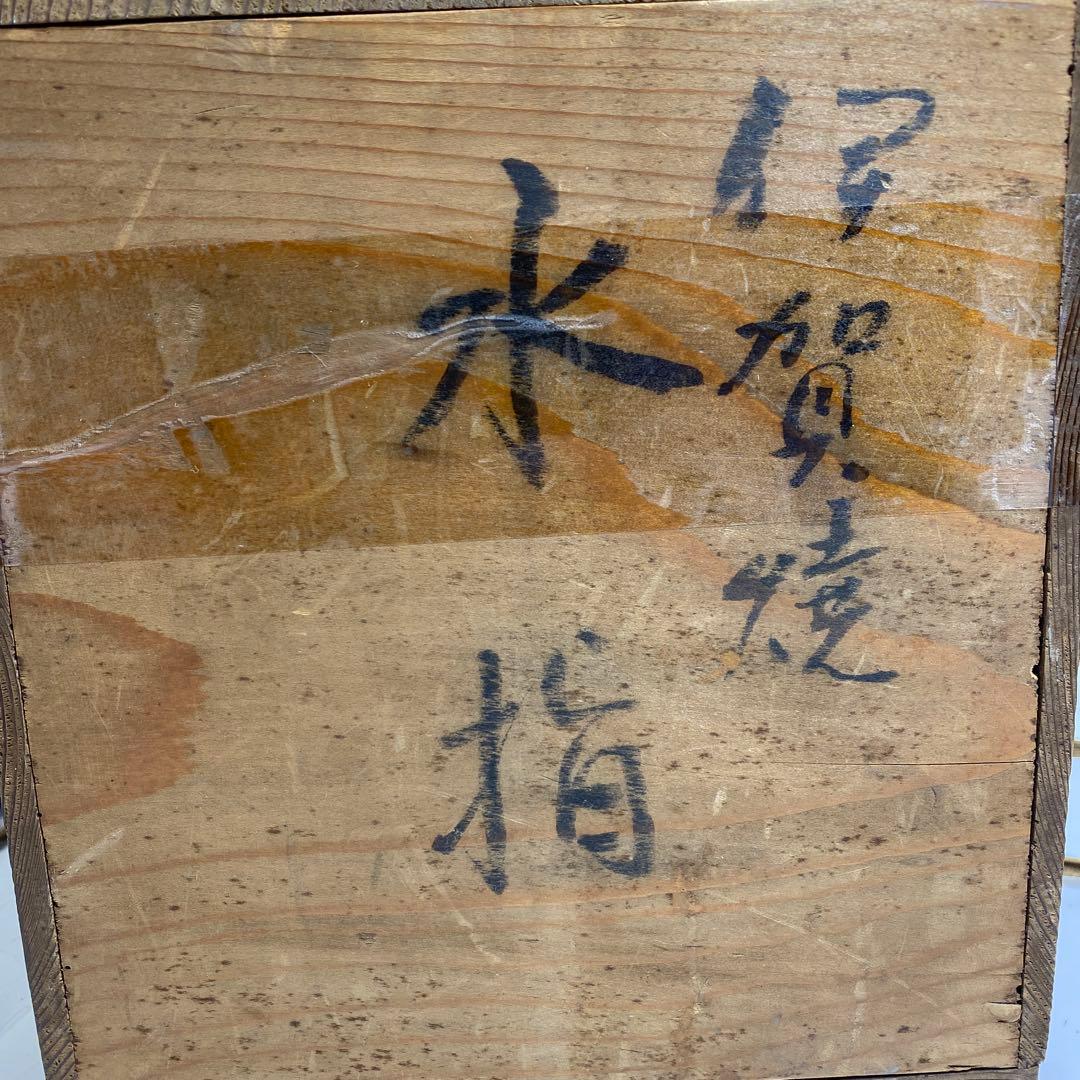 伊賀焼
水指